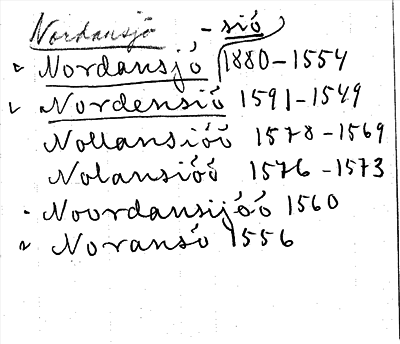 Nordansjö - siö
Nordansjö 1880-1554
Nordensiö 1591-1549
Nollansiöö 1578-1569
Nolansiöö 1576-1573
Noordansijöö 1560
Noransö 1556